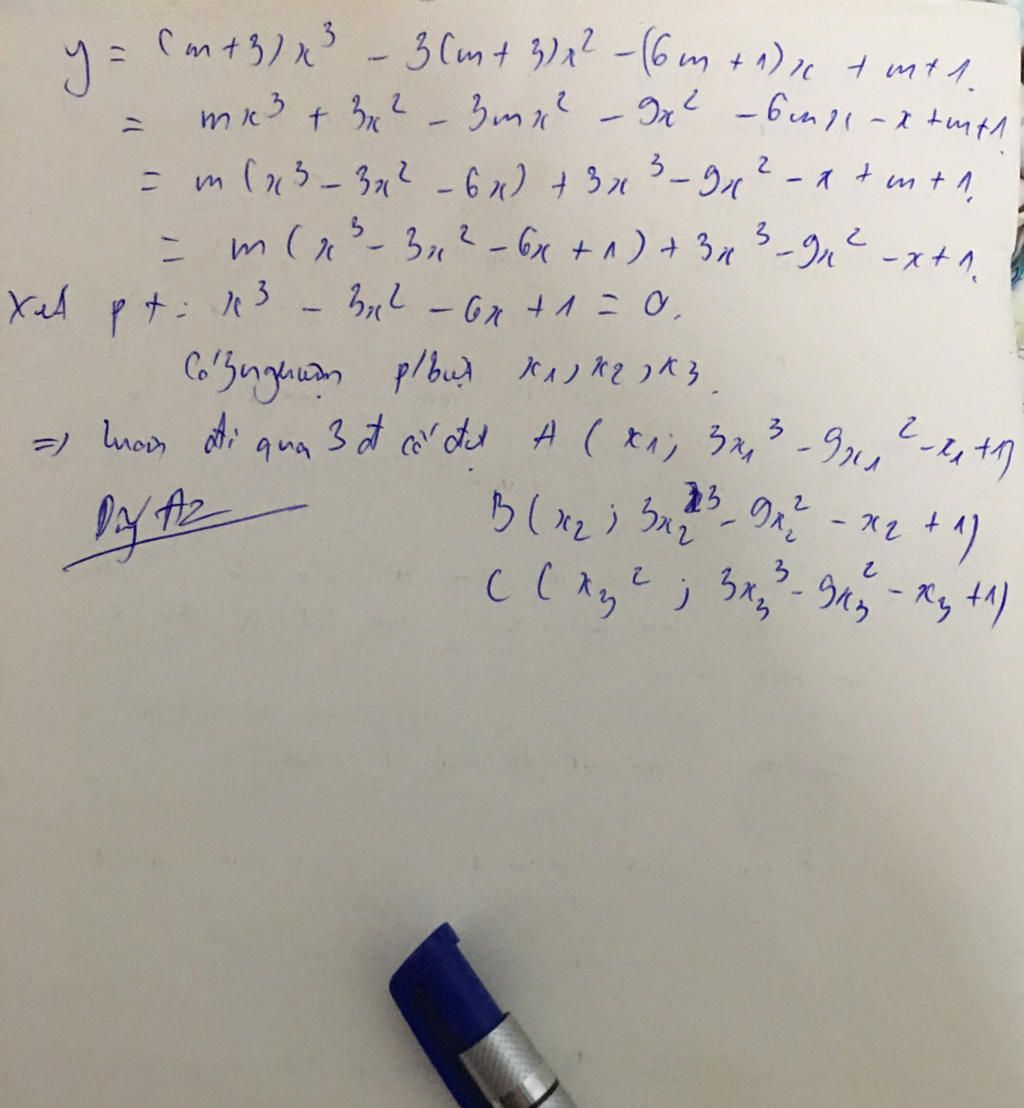 y = (m+3)x³ - 3(m+3)x² - (6m+1)x + m+1.
= mx³ + 3x² - 3mx² - 9x² - 6mx - x + m+1.
= m(x³ - 3x² - 6x) + 3x³ - 9x² - x + m + 1.
= m(x³ - 3x² - 6x + 1) + 3x³ - 9x² - x + 1.
Xét pt: x³ - 3x² - 6x + 1 = 0.
Có 3 nghiệm p/biệt x₁, x₂, x₃.
=> luôn đi qua 3 đ cố định A(x₁; 3x₁³ - 9x₁² - x₁ + 1)
B(x₂; 3x₂³ - 9x₂² - x₂ + 1)
C(x₃²; 3x₃³ - 9x₃² - x₃ + 1)